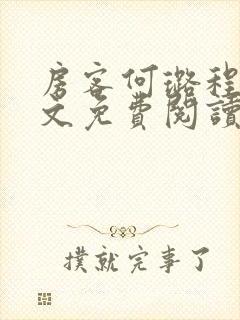 房客何璐程
文免費閱讀
撲就完事了